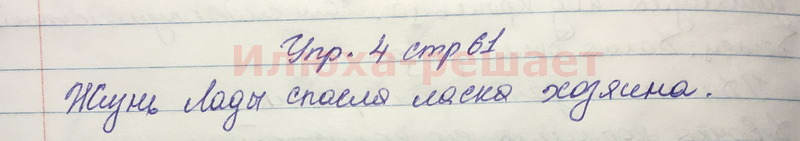 Упр. 4 стр 61
Илюха-решает
Жизнь Лады спасла ласка хозяина.